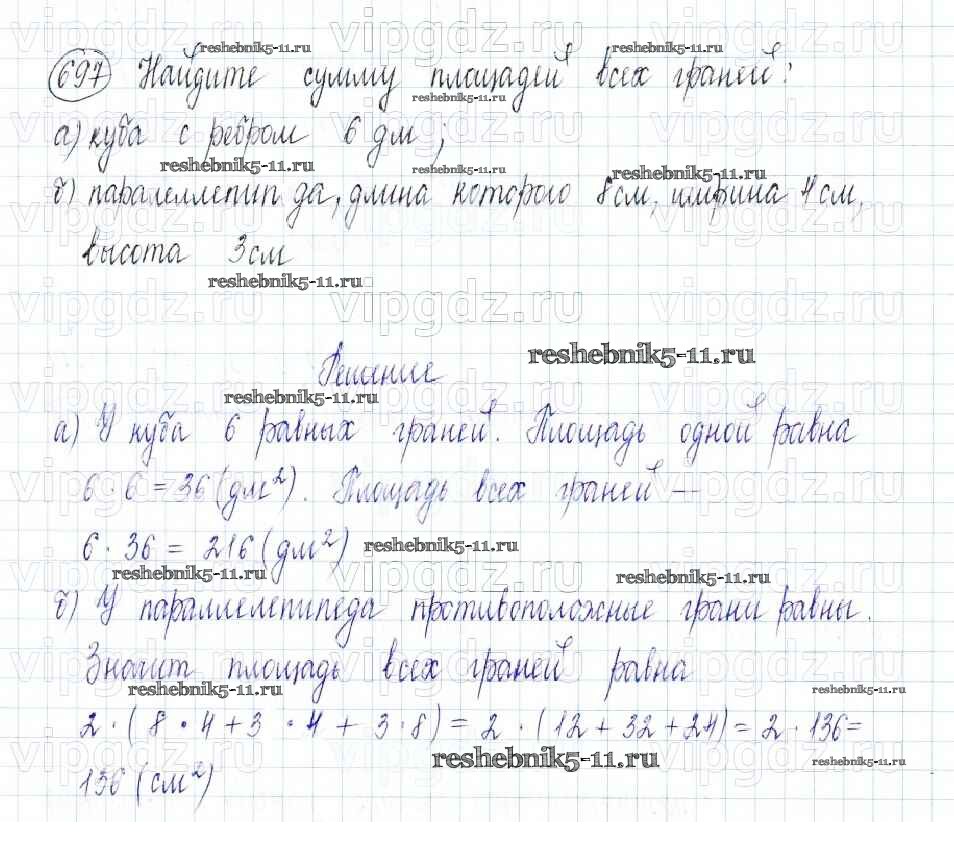 697 Найдите сумму площадей всех граней:
а) куба с ребром 6 дм;
б) параллеллепипда, длина которого 8 см, ширина 4 см,
высота 3 см
Решение
а) У куба 6 равных граней. Площадь одной равна
6 · 6 = 36 (дм²). Площадь всех граней –
6 · 36 = 216 (дм²)
б) У параллелепипеда противоположные грани равны.
Значит площадь всех граней равна
2 · (8 · 4 + 3 · 4 + 3 · 8) = 2 · (12 + 32 + 24) = 2 · 136 =
136 (см²)